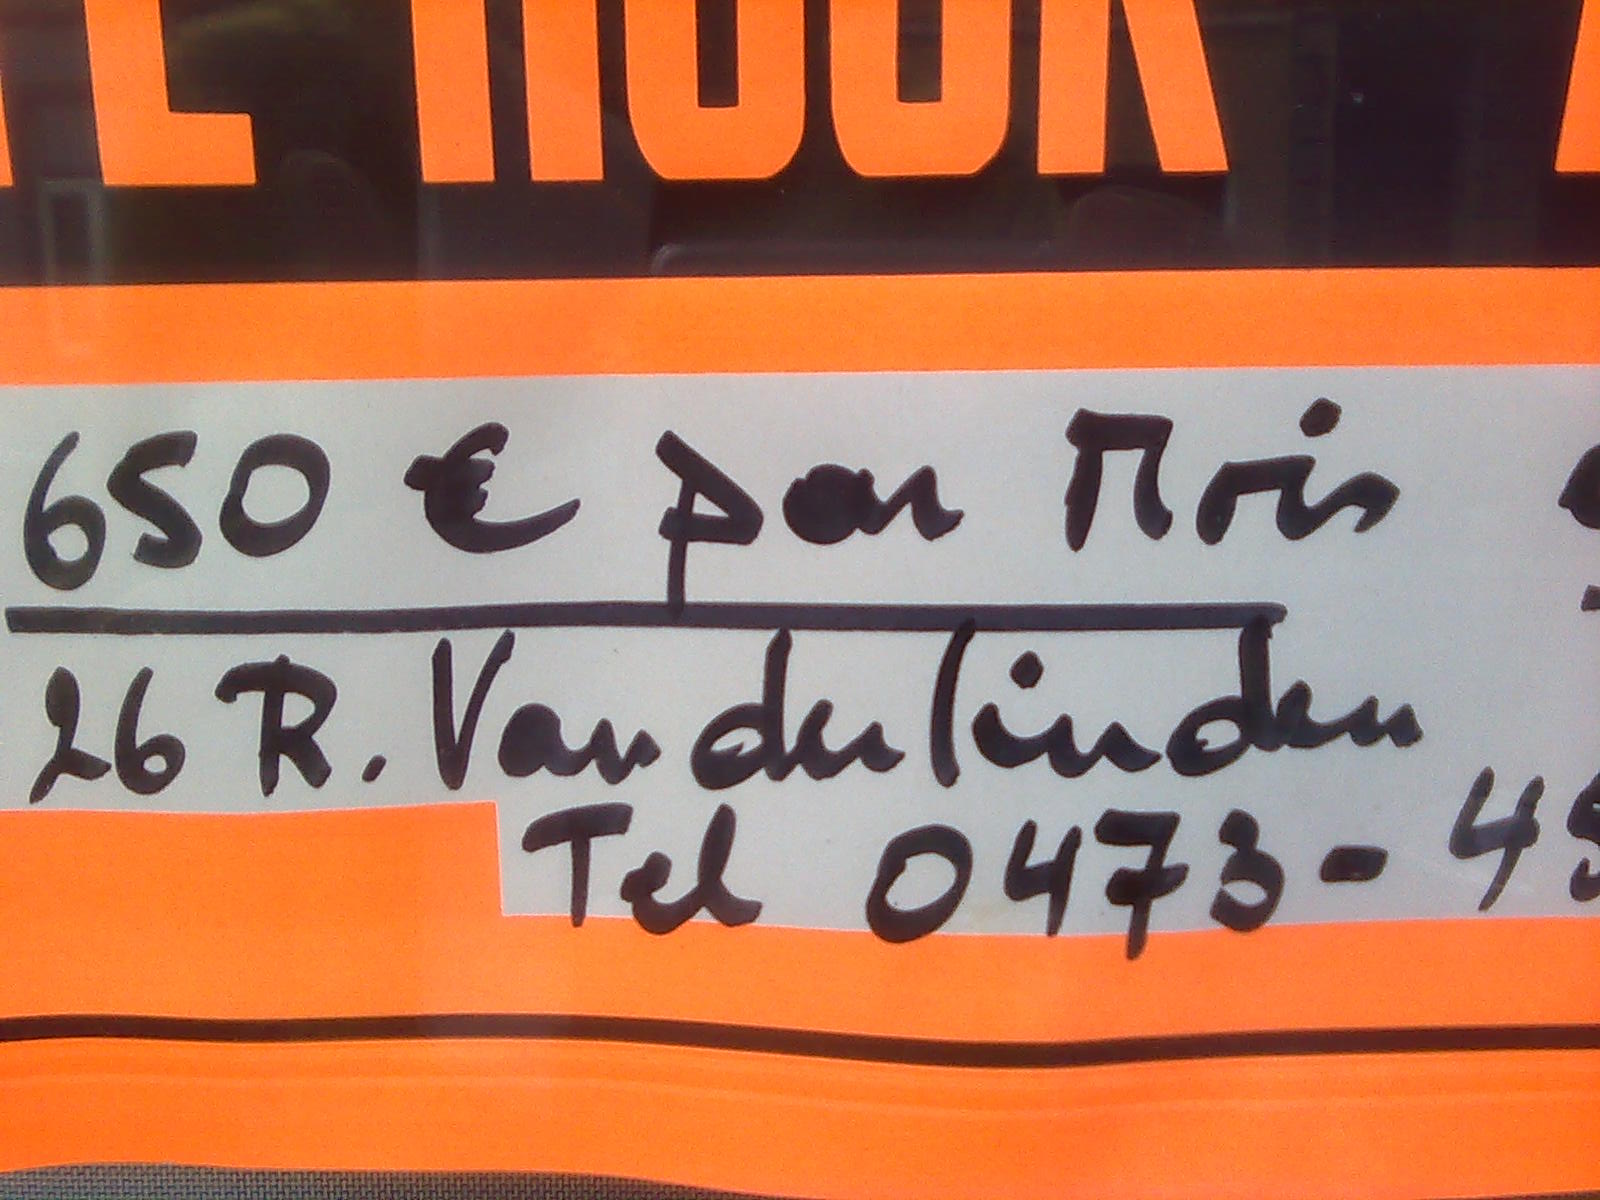 650 € par Mois
26 R. Vanderlinden
Tel 0473-45